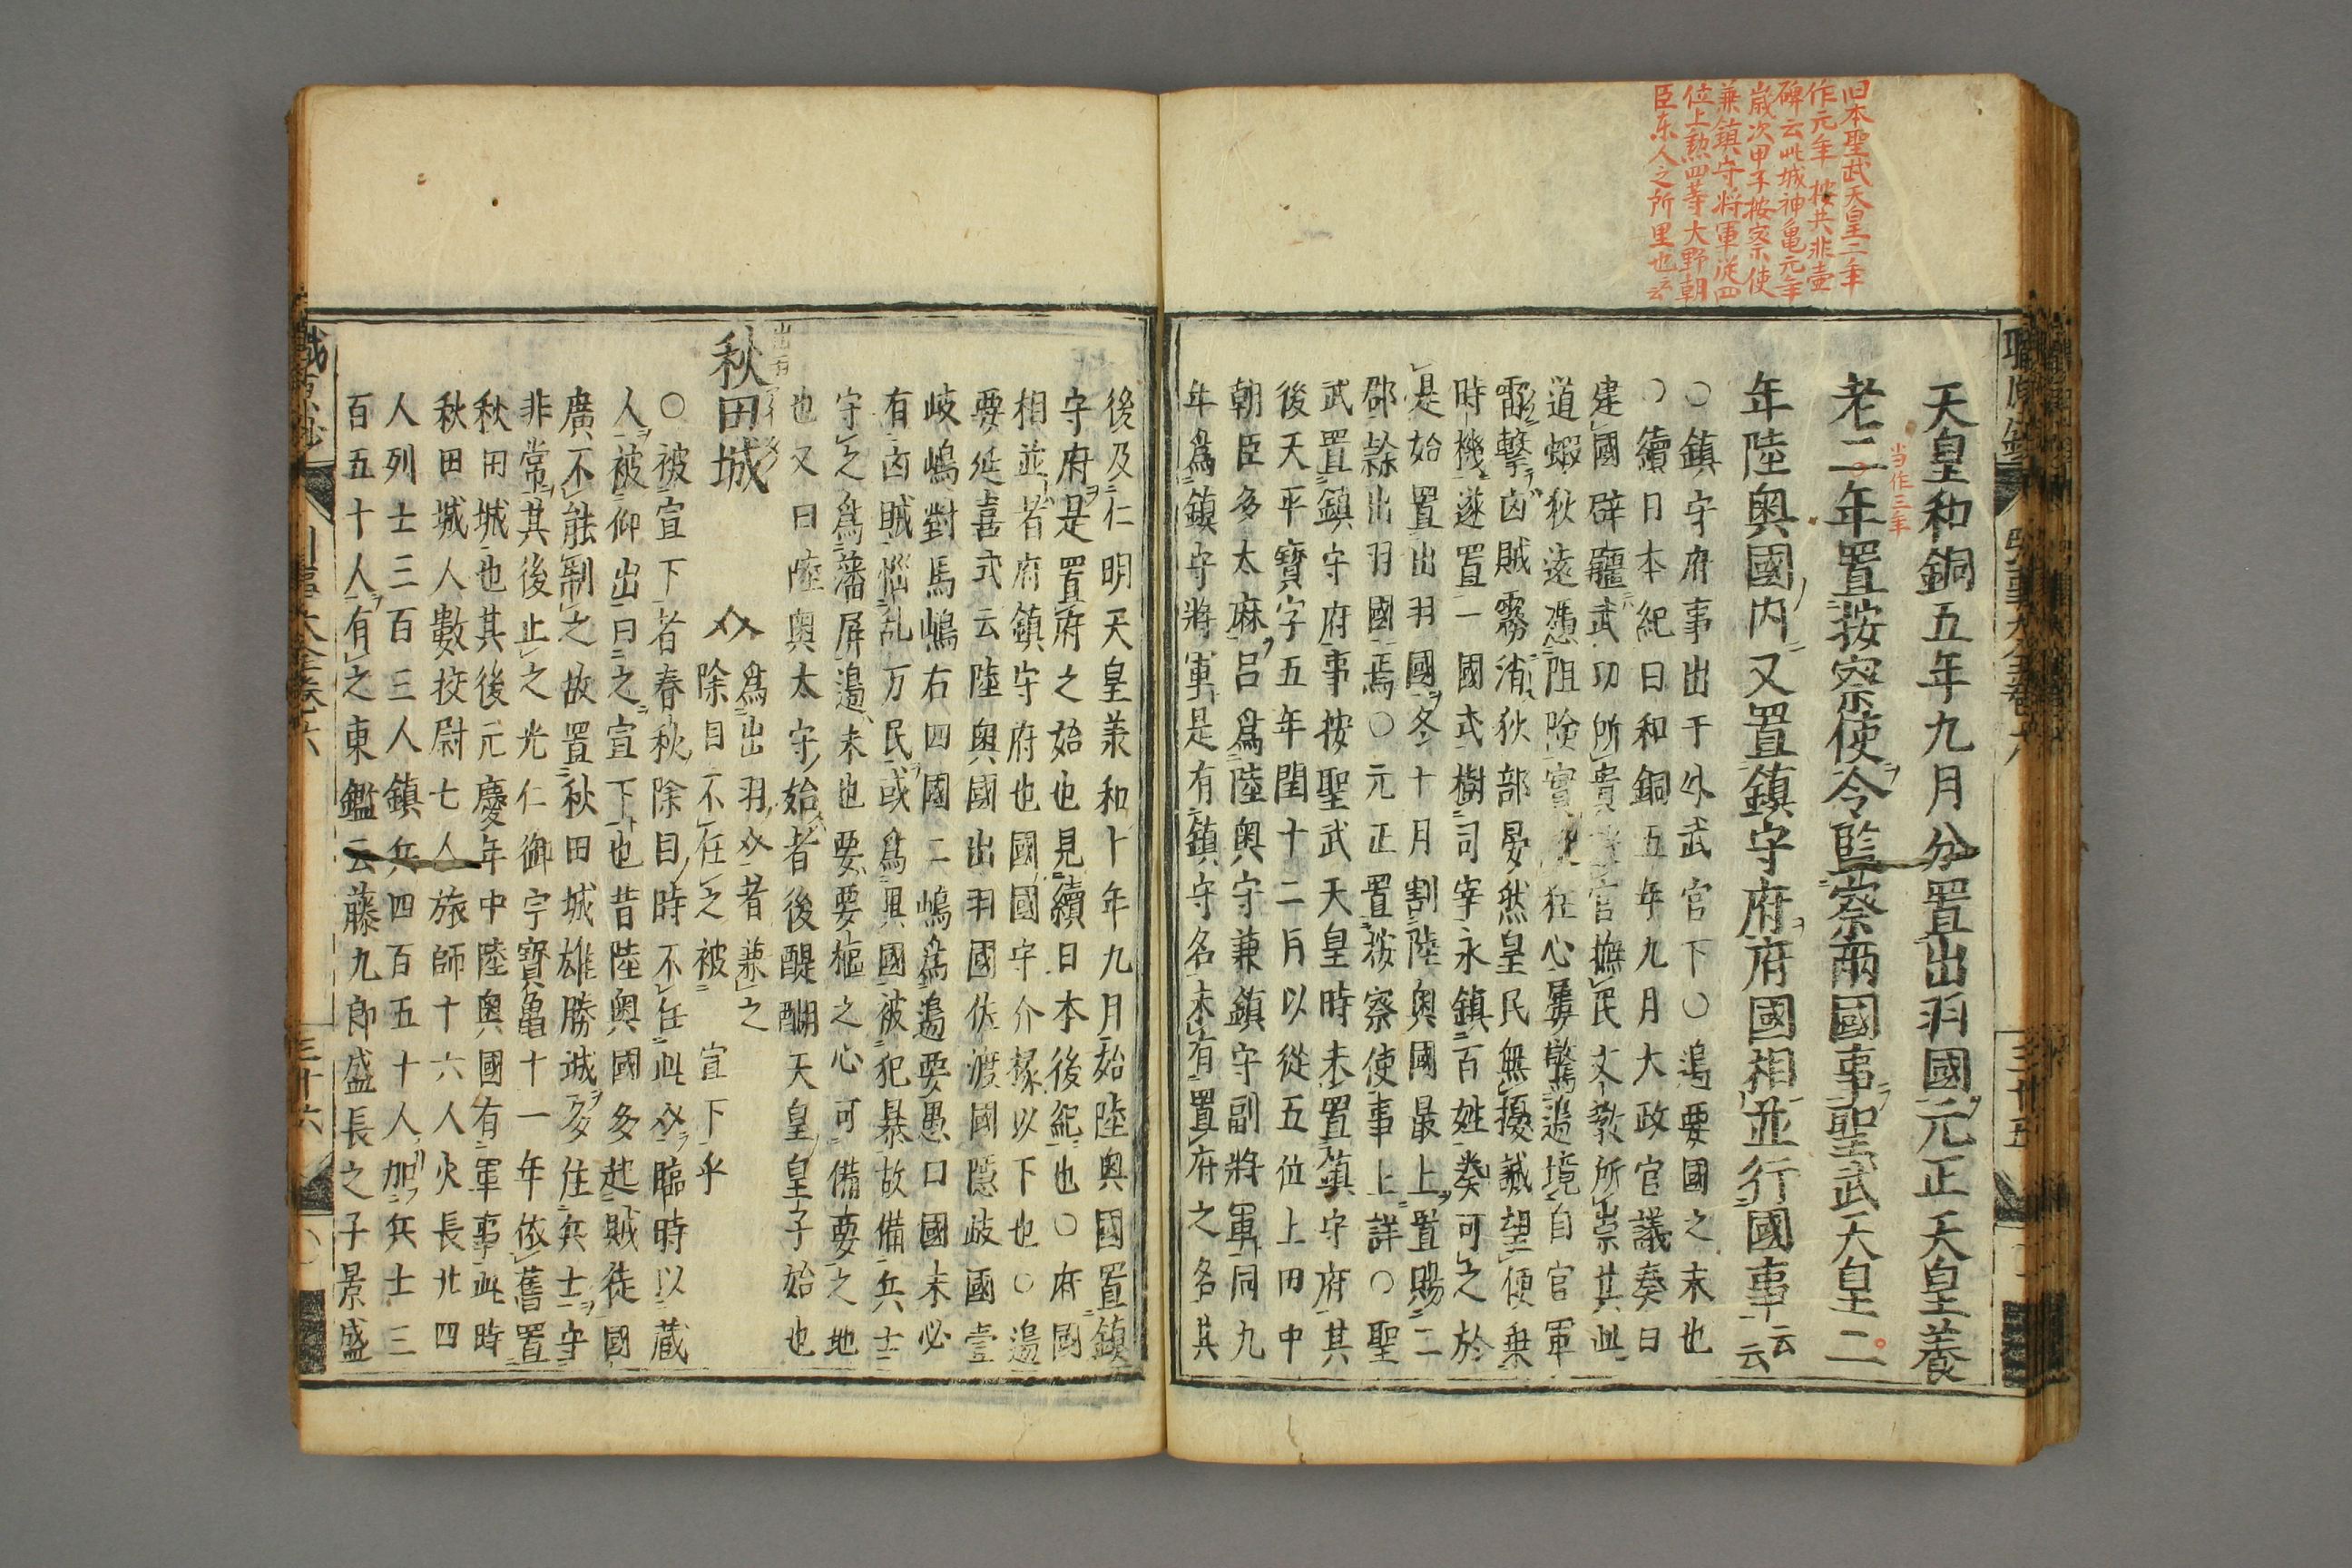 旧本聖武天皇二年
作元年 按共非壷
碑云此城神亀元年
歳次甲子按察使
兼鎮守将軍従四
位上勲四等大野朝
臣东人之所里也云云
天皇和銅五年九月分置出羽國元正天皇養
当作三年
老二年置按察使令監察兩國事聖武天皇二
年陸奥國内又置鎮守府府國相並行國事云云
○鎮守府事出于外武官下○邊要國之末也
○續日本紀曰和銅五年九月大政官議奏曰
建國辟疆武功所貴 官撫民文教所崇其北
道蝦狄遠憑阻険實 狂心屢驚邉境自官軍
雷撃凶賊霧消狄部晏然皇民無擾誠望便乗
時機遂置一國式樹司宰永鎮百姓奏可之於
是始置出羽國冬十月割陸奥國最上置賜二
郡隷出羽國焉○元正置按察使事上詳○聖
武置鎮守府事按聖武天皇時未置鎮守府其
後天平寳字五年閏十二月以從五位上田中
朝臣多太麻呂爲陸奥守兼鎮守副將軍同九
年爲鎮守將軍是有鎮守名未有置府之名其
職原鈔 引事大全巻六 三十五
後及仁明天皇美和十年九月始陸奥國置鎮
守府是置府之始也見續日本後紀也○府國
相並者府鎮守府也國國守介掾以下也○邊
要延喜式云陸奥國出羽國佐渡國隠岐國壹
岐嶋對馬嶋右四國二嶋爲邊要愚曰國末必
有凶賊悩乱万民或爲異國被犯暴故備兵士
守之爲藩屏邉末也要要樞之心可備要之地
也又曰陸奥太守始者後醍醐天皇皇子始也
秋田城 介 爲出羽介者兼之
除目不任之被 宣下乎
○被宣下者春秋除目時不任此介臨時以蔵
人被仰出曰之宣下也昔陸奥國多起賊徒國
廣不能制之故置秋田城雄勝城多住兵士守
非常其後止之光仁御宇寳亀十一年依舊置
秋田城也其後元慶年中陸奥國有軍事此時
秋田城人數挍尉七人旅師十六人火長廿四
人列士三百三人鎮兵四百五十人加兵士三
百五十人有之東鑑云藤九郎盛長之子景盛
職原鈔 引事大全巻六 三十六